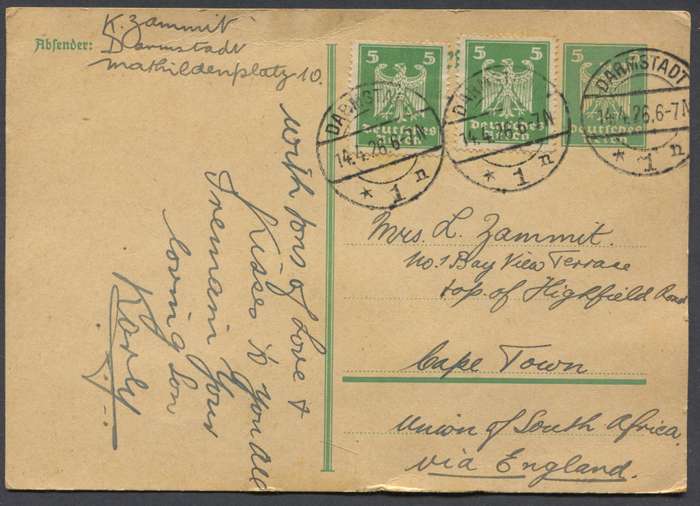 Absender:
K. Zammit
Darmstadt
Mathildenplatz 10.
with tons of Love &
Kisses to you all
I remain Your
loving Son
Karly
5 5
Deutsches
Reich
5 5
Deutsches
Reich
5 5
Deutsches
Reich
DARMSTADT
14.4.26.6-7N
* 1 n
DARMSTADT
14.4.26.6-7N
* 1 n
DARMSTADT
14.4.26.6-7N
* 1 n
Mrs. L. Zammit.
No. 1 Bay View Terrace
top of Highfield Road
Cape Town
Union of South Africa
via England.